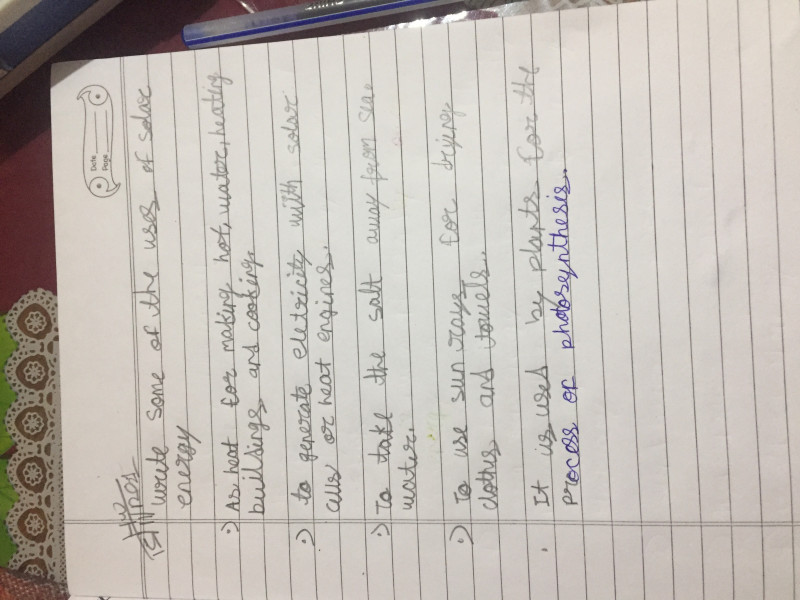 Date
Page
write some of the uses of solar
energy
:) As heat for making hot, water, heating
buildings and cooking.
:) to generate eletricity with solar
cells or heat engines.
:) To take the salt away from sea
water.
:) To use sun rays for drying
clothes and towels.
. It is used by plants for the
process of photosynthesis.